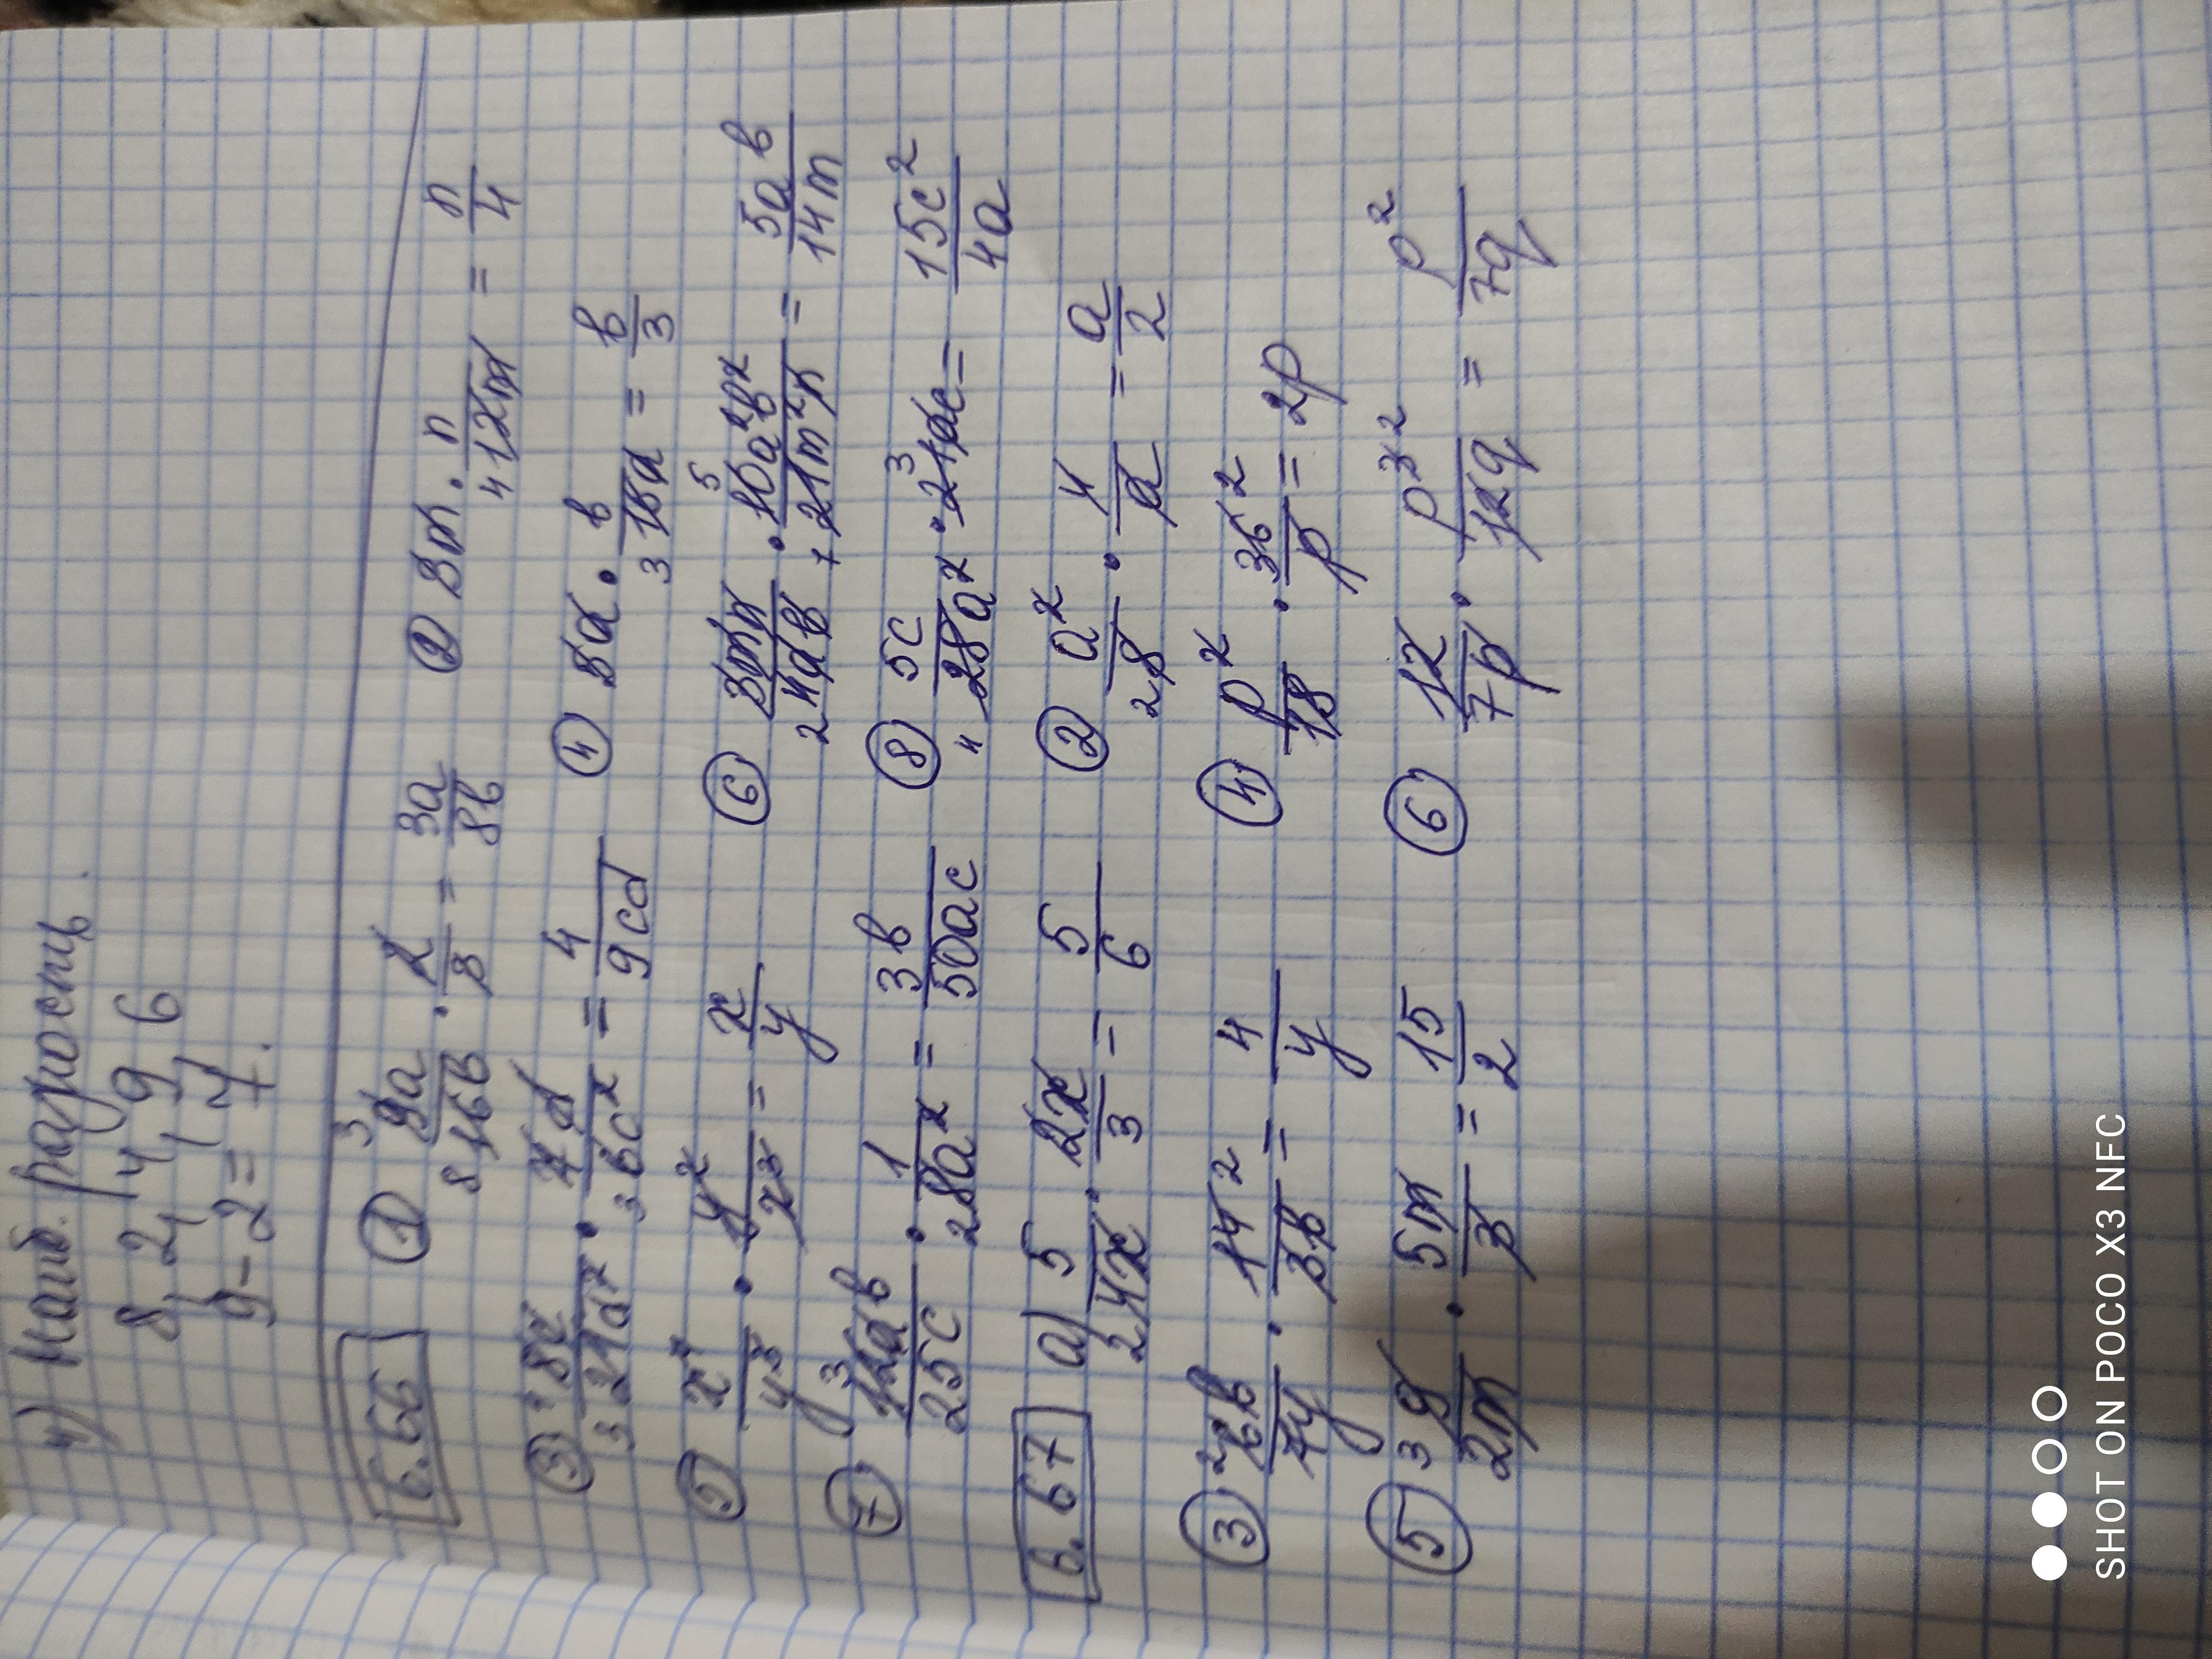 4) Наиб. разность.
8, 2, 4, 9, 6
9 - 2 = 7.
6.66 ① 9a/16b · 2/3 = 3a/8b ② 3m · n/12m = n/4
③ 8c/21d² · 7d/6c² = 4/9cd ④ 5a · b/15a = b/3
⑤ x⁴/y³ · y²/x³ = x/y ⑥ 3mn/4ab · 10a²b²/21m²n = 5ab/14m
⑦ 12ab/25c · 1/8a² = 3b/50ac ⑧ 5c/28a² · 21ac = 15c²/4a
6.67 а) 5/4x · 2x/3 = 5/6 ② a²/8 · 4/a = a/2
③ 6b/7y · 14/3b = 4/y ④ p²/18 · 36/p = 2p
⑤ 9/2m · 5m/3 = 15/2 ⑥ 12/7p · p³/12q = p²/7q
SHOT ON POCO X3 NFC